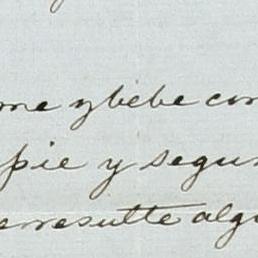 me y bebe con
pie y segun
enresulte algu